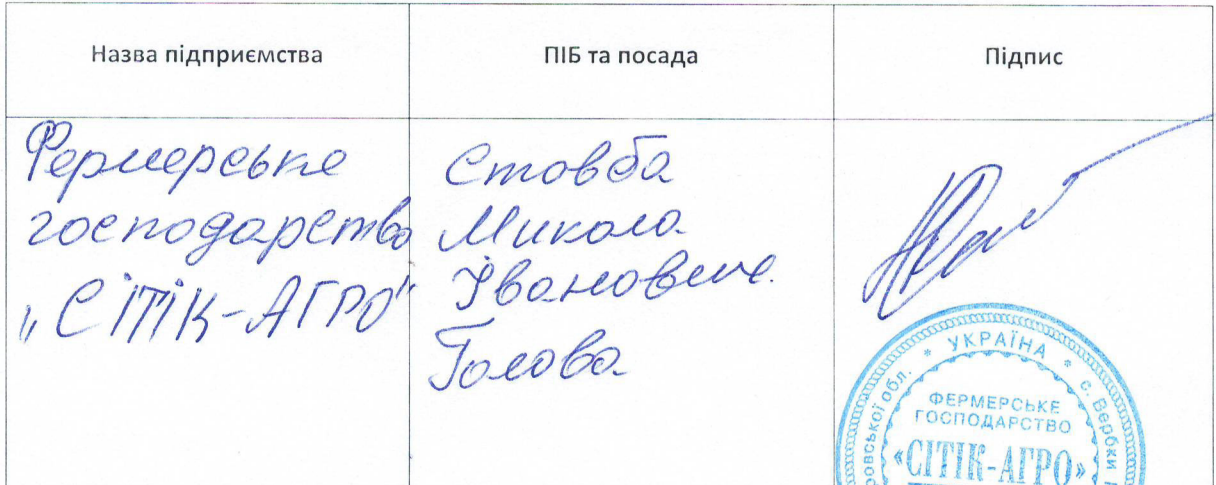 Назва підприємства
ПІБ та посада
Підпис
Фермерське
господарство
„СІТІК-АГРО"
Стовба
Микола
Іванович.
Голова
* УКРАЇНА *
с. Вербки
ФЕРМЕРСЬКЕ
ГОСПОДАРСТВО
«СІТІК-АГРО»